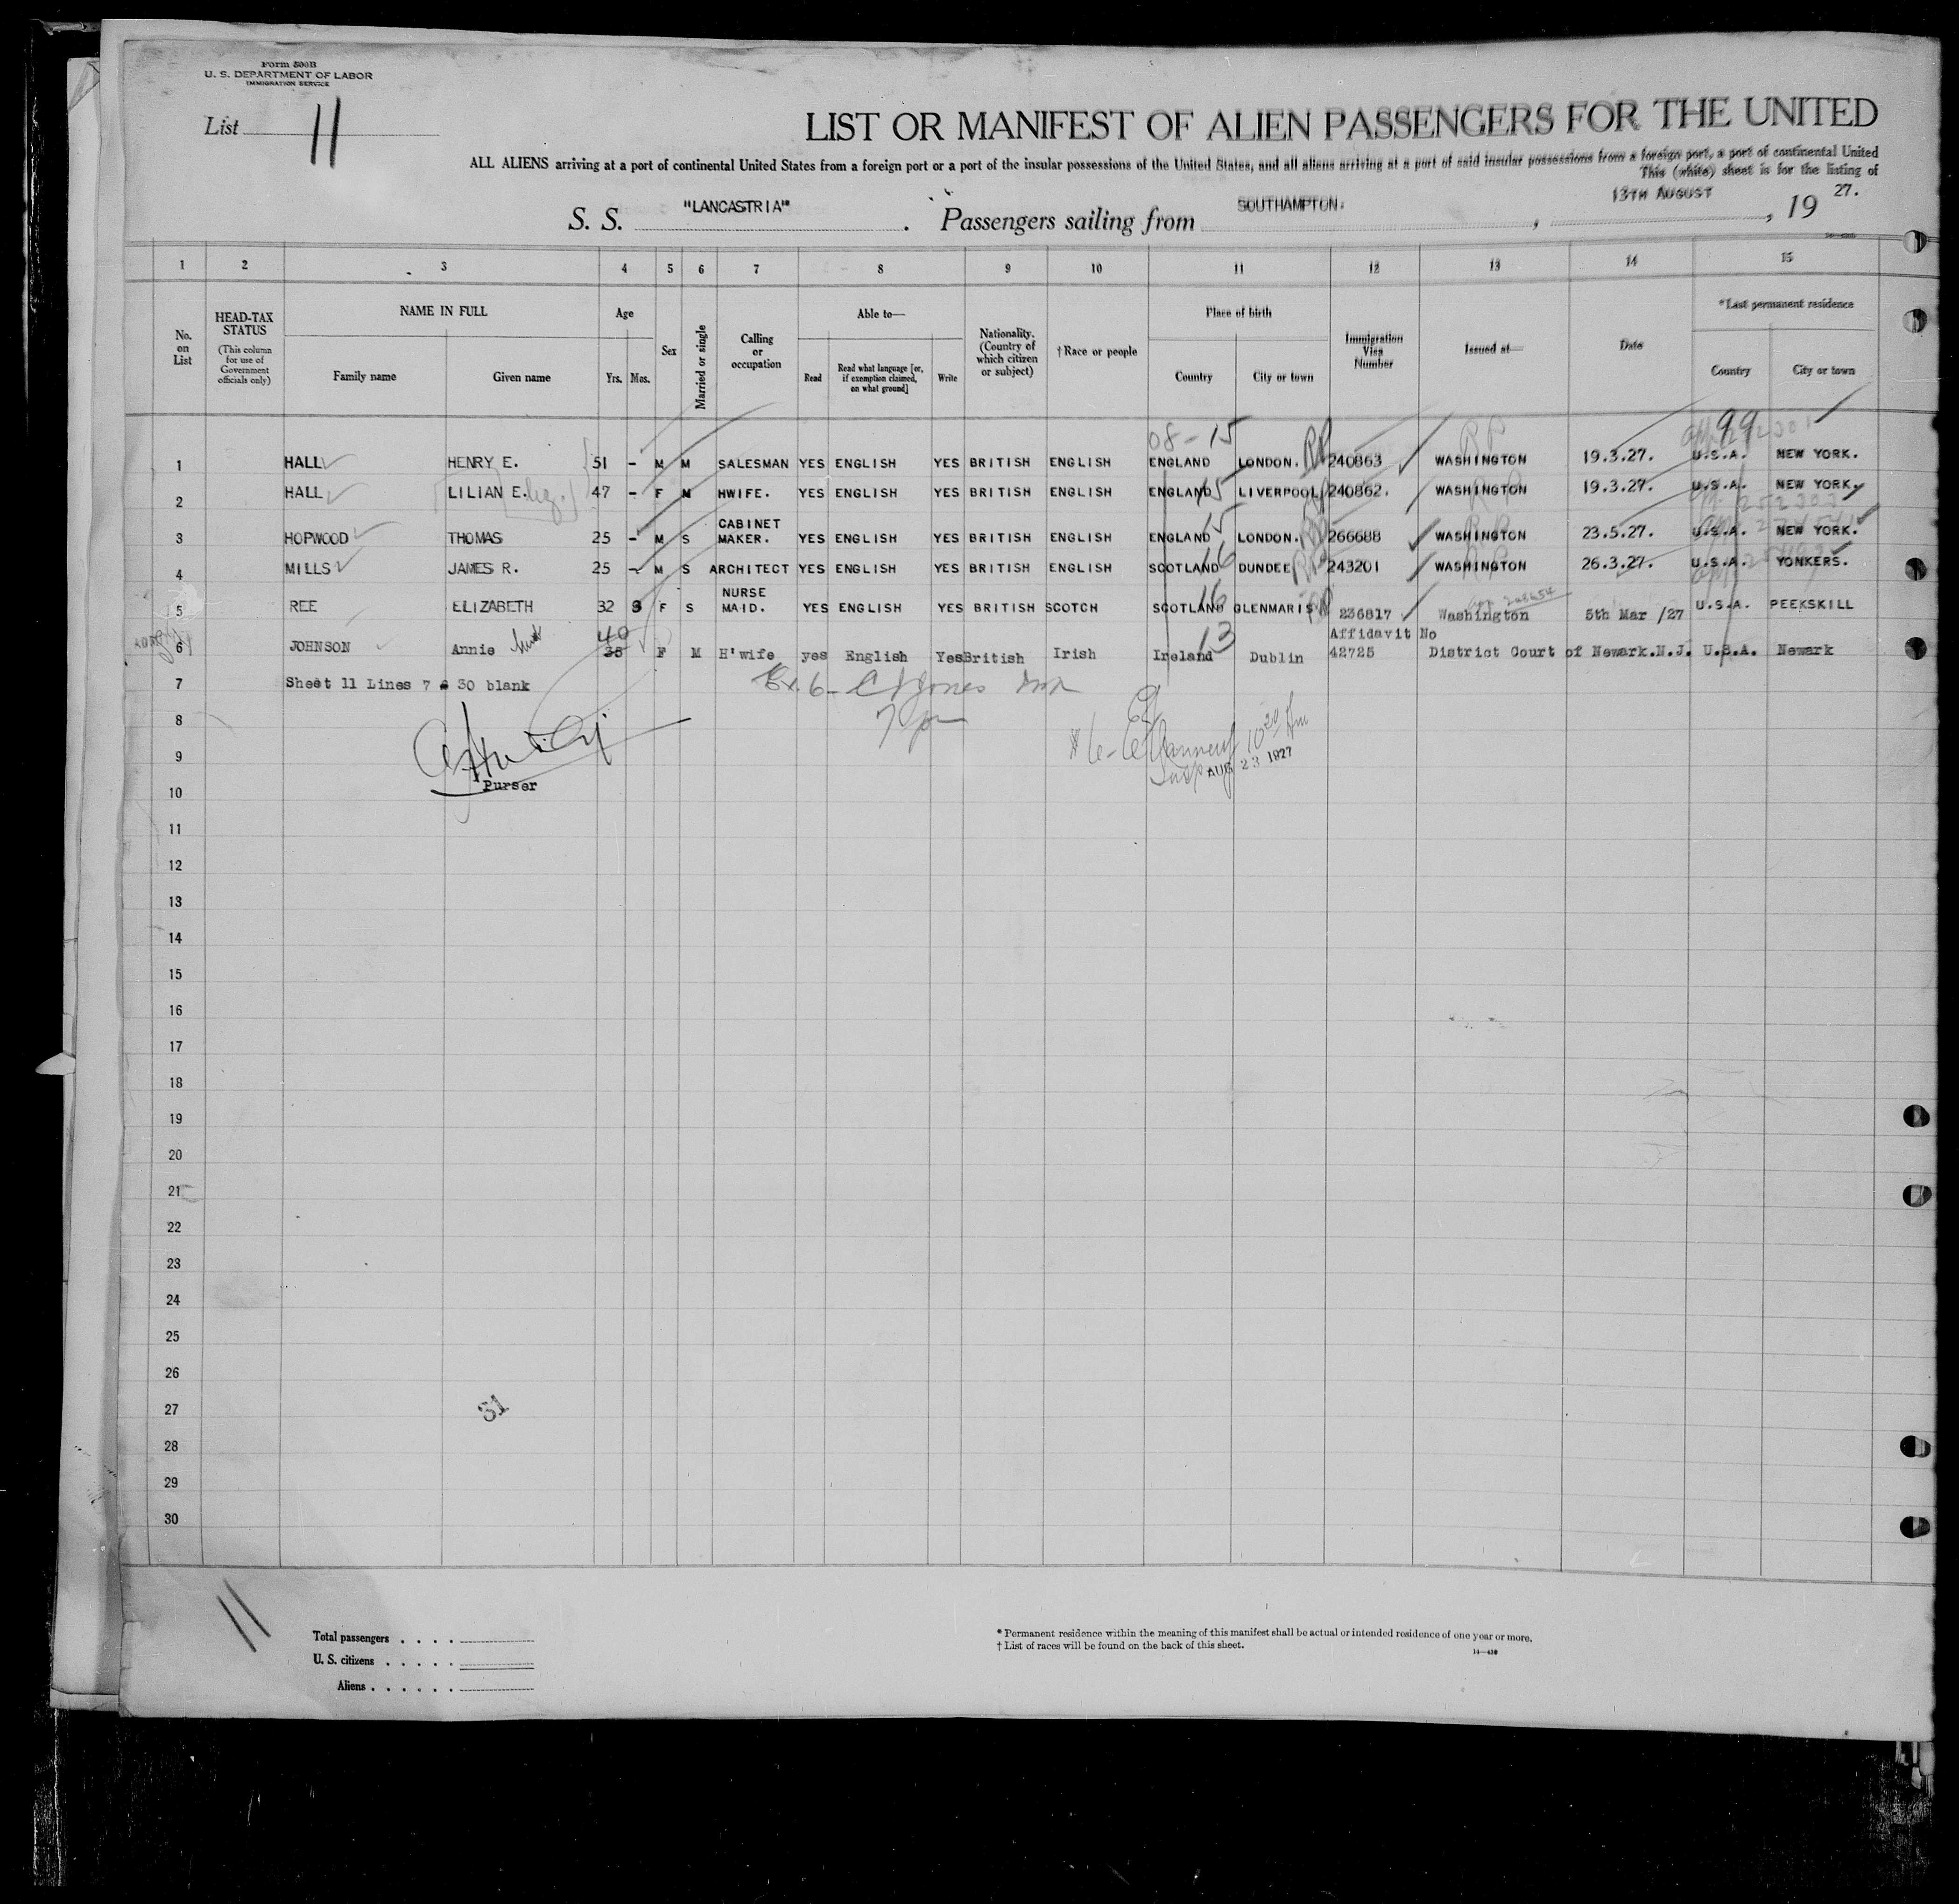 Form 500B
U. S. DEPARTMENT OF LABOR
IMMIGRATION SERVICE
List 11
LIST OR MANIFEST OF ALIEN PASSENGERS FOR THE UNITED
ALL ALIENS arriving at a port of continental United States from a foreign port or a port of the insular possessions of the United States, and all aliens arriving at a port of said insular possessions from a foreign port, a port of continental United
This (white) sheet is for the listing of
S. S. "LANCASTRIA" . Passengers sailing from SOUTHAMPTON. , 13TH AUGUST , 19 27.
1 2 3 4 5 6 7 8 9 10 11 12 13 14 15
No. on List
HEAD-TAX STATUS (This column for use of Government officials only)
NAME IN FULL
Family name Given name
Age
Yrs. Mos.
Sex
Married or single
Calling or occupation
Able to—
Read Read what language [or, if exemption claimed, on what ground] Write
Nationality. (Country of which citizen or subject)
†Race or people
Place of birth
Country City or town
Immigration Visa Number
Issued at—
Date
*Last permanent residence
Country City or town
08-15 RP RP 99
1 HALL HENRY E. 51 - M M SALESMAN YES ENGLISH YES BRITISH ENGLISH ENGLAND LONDON. 240863 WASHINGTON 19.3.27. U.S.A. NEW YORK.
2 HALL LILIAN E. 47 - F M HWIFE. YES ENGLISH YES BRITISH ENGLISH ENGLAND 15 LIVERPOOL 240862. WASHINGTON 19.3.27. U.S.A. NEW YORK.
3 HOPWOOD THOMAS 25 - M S CABINET MAKER. YES ENGLISH YES BRITISH ENGLISH ENGLAND 15 LONDON. 266688 WASHINGTON 23.5.27. U.S.A. NEW YORK.
4 MILLS JAMES R. 25 - M S ARCHITECT YES ENGLISH YES BRITISH ENGLISH SCOTLAND 16 DUNDEE 243201 WASHINGTON 26.3.27. U.S.A. YONKERS.
5 REE ELIZABETH 32 8 F S NURSE MAID. YES ENGLISH YES BRITISH SCOTCH SCOTLAND 16 GLENMARIS 236817 Washington 5th Mar /27 U.S.A. PEEKSKILL
6 JOHNSON Annie 40 35 F M H'wife yes English Yes British Irish Ireland 13 Dublin Affidavit No 42725 District Court of Newark.N.J. U.S.A. Newark
7 Sheet 11 Lines 7 30 blank
8
9
Purser
AUG 23 1927
10
11
12
13
14
15
16
17
18
19
20
21
22
23
24
25
26
27
31
28
29
30
11
Total passengers . . . .
U. S. citizens . . . . .
Aliens . . . . . .
* Permanent residence within the meaning of this manifest shall be actual or intended residence of one year or more.
† List of races will be found on the back of this sheet.
14—430